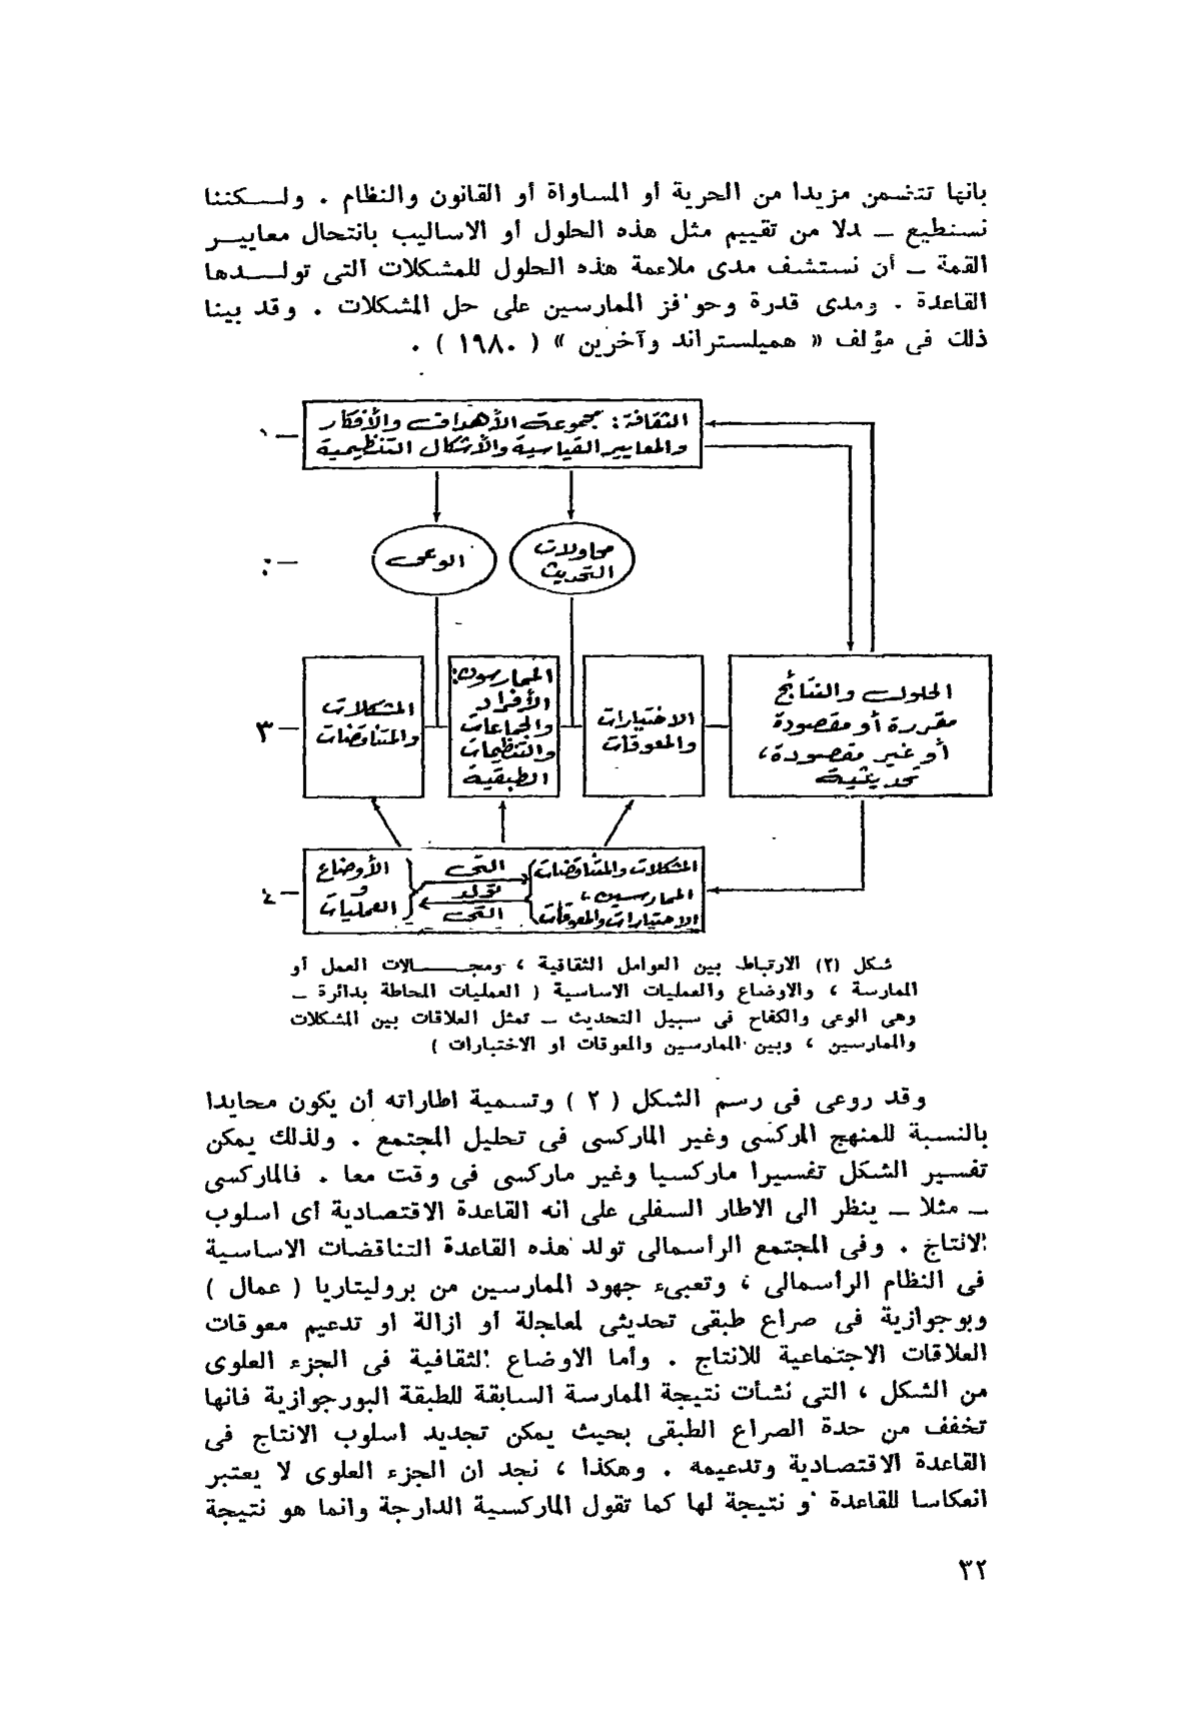 بانها تتضمن مزيدا من الحرية أو المساواة أو القانون والنظام . ولـــكننا
نستطيع ــ بدلا من تقييم مثل هذه الحلول أو الاساليب بانتحال معاييــر
القمة ــ أن نستشف مدى ملاءمة هذه الحلول للمشكلات التى تولـــدها
القاعدة . ومدى قدرة وحوافز الممارسين على حل المشكلات . وقد بينا
ذلك فى مؤلف « هميلستراند وآخرين » ( ١٩٨٠ ) .
الثقافة : مجموعة الأهداف والأفكار
والمعايير القياسية والأشكال التنظيمية
١ —
محاولات
التحديث
الوعى
٢ —
الحلول والنتائج
مقررة أو مقصودة
أو غير مقصودة ،
تحديثية
الاختيارات
والمعوقات
الممارسون :
الأفراد
والجماعات
والتنظيمات
الطبقية
المشكلات
والمتناقضات
٣ —
المشكلات والمتناقضات
الممارسين ،
الاختيارات والمعوقات
التى
تولد
التى
الأوضاع
و
العمليات
٤ —
شكل (٢) الارتباط بين العوامل الثقافية ، ومجـــــالات العمل أو
الممارسة ، والاوضاع والعمليات الاساسية ( العمليات المحاطة بدائرة ــ
وهى الوعى والكفاح فى سبيل التحديث ــ تمثل العلاقات بين المشكلات
والممارسين ، وبين الممارسين والمعوقات او الاختبارات )
وقد روعى فى رسم الشكل ( ٢ ) وتسمية اطاراته أن يكون محايدا
بالنسبة للمنهج المركسى وغير الماركسى فى تحليل المجتمع . ولذلك يمكن
تفسير الشكل تفسيرا ماركسيا وغير ماركسى فى وقت معا . فالماركسى
ــ مثلا ــ ينظر الى الاطار السفلى على انه القاعدة الاقتصادية أى اسلوب
الانتاج . وفى المجتمع الرأسمالى تولد هذه القاعدة التناقضات الاساسية
فى النظام الرأسمالى ، وتعبىء جهود الممارسين من بروليتاريا ( عمال )
وبوجوازية فى صراع طبقى تحديثى لمعاجلة أو ازالة او تدعيم معوقات
العلاقات الاجتماعية للانتاج . وأما الاوضاع الثقافية فى الجزء العلوى
من الشكل ، التى نشأت نتيجة الممارسة السابقة للطبقة البورجوازية فانها
تخفف من حدة الصراع الطبقى بحيث يمكن تجديد اسلوب الانتاج فى
القاعدة الاقتصادية وتدعيمه . وهكذا ، نجد ان الجزء العلوى لا يعتبر
انعكاسا للقاعدة أو نتيجة لها كما تقول الماركسية الدارجة وانما هو نتيجة
٣٢